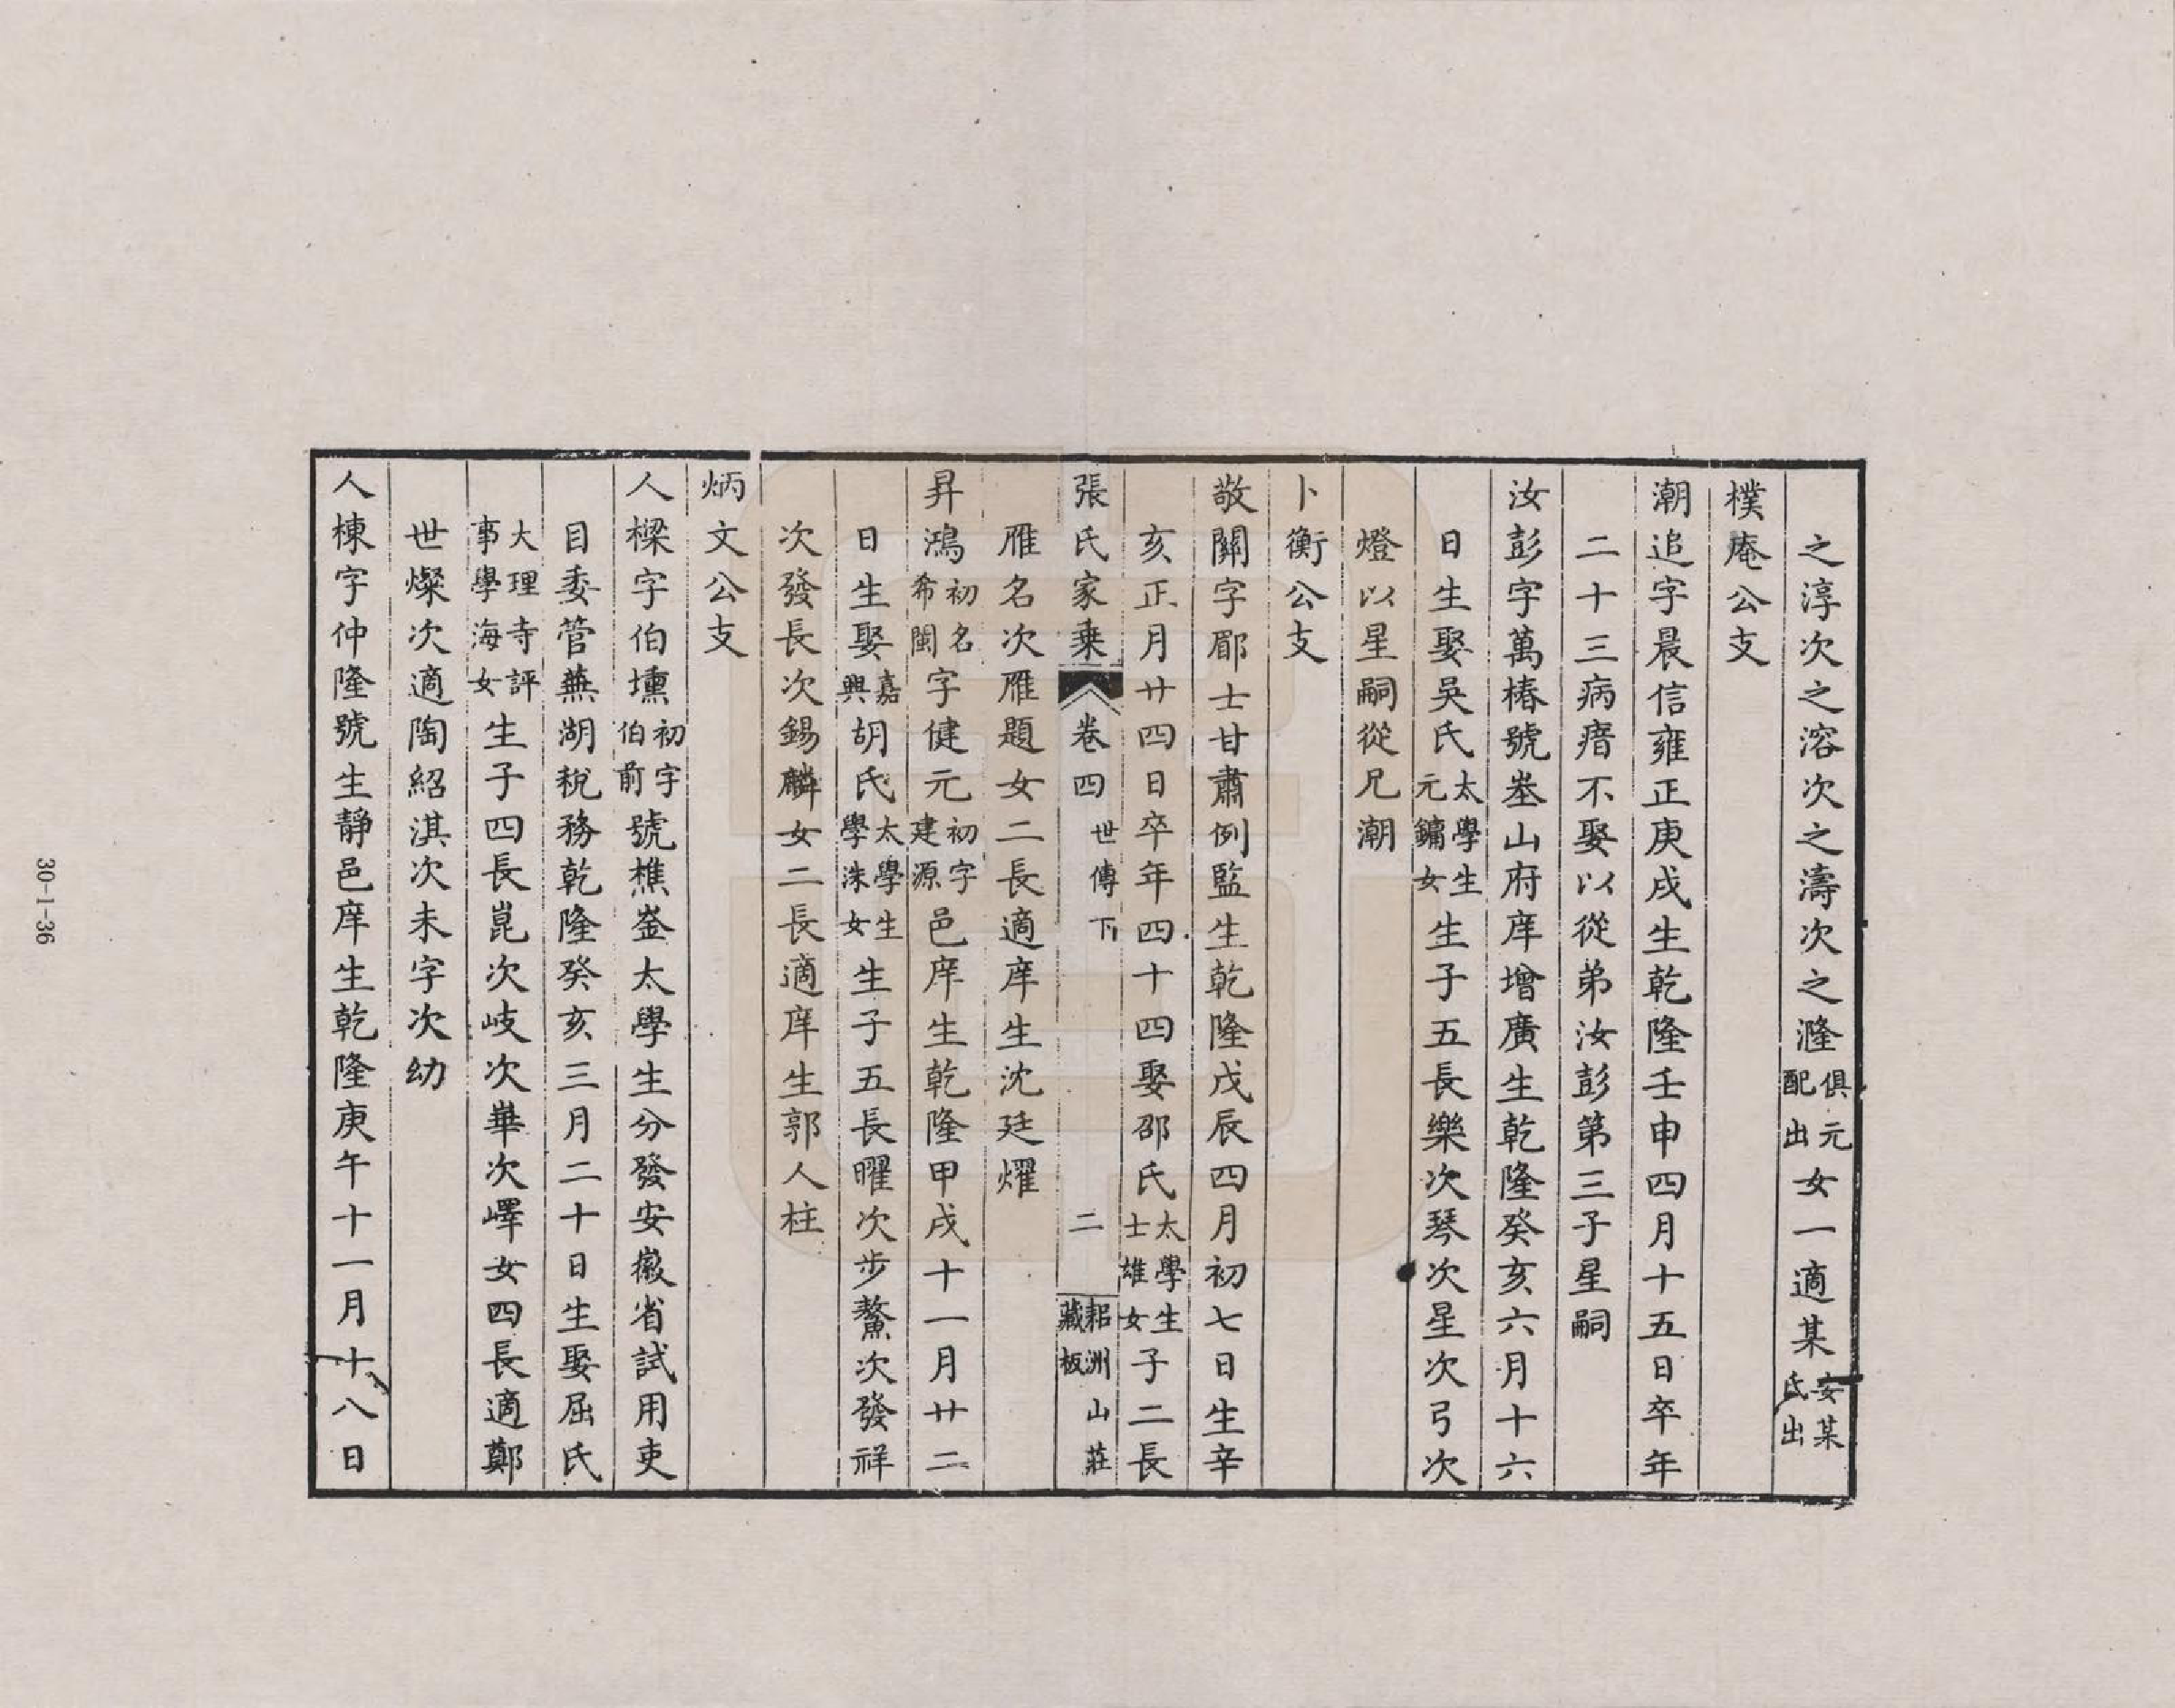 之淳次之溶次之濤次之漋俱元配出女一適某妄某氏出
樸庵公支
潮追字晨信雍正庚戌生乾隆壬申四月十五日卒年
二十三病瘖不娶以從弟汝彭第三子星嗣
汝彭字萬椿號峚山府庠增廣生乾隆癸亥六月十六
日生娶吳氏太學生元鏞女生子五長樂次琴次星次弓次
燈以星嗣從兄潮
卜衡公支
敬關字郿士甘肅例監生乾隆戊辰四月初七日生辛
亥正月廿四日卒年四十四娶邵氏太學生士雄女子二長
張氏家乗 卷四 世傳下 二 耜洲山莊藏板
雁名次雁題女二長適庠生沈廷燿
昇鴻初名希閩字健元初字建源邑庠生乾隆甲戌十一月廿二
日生娶嘉興胡氏太學生學洙女生子五長曜次步鰲次發祥
次發長次錫麟女二長適庠生郭人柱
炳文公支
人樑字伯壎初字伯前號樵崟太學生分發安徽省試用吏
目委管蕪湖稅務乾隆癸亥三月二十日生娶屈氏
大理寺評事學海女生子四長崑次岐次崋次嶧女四長適鄭
世燦次適陶紹淇次未字次幼
人棟字仲隆號生靜邑庠生乾隆庚午十一月十八日
30-1-36